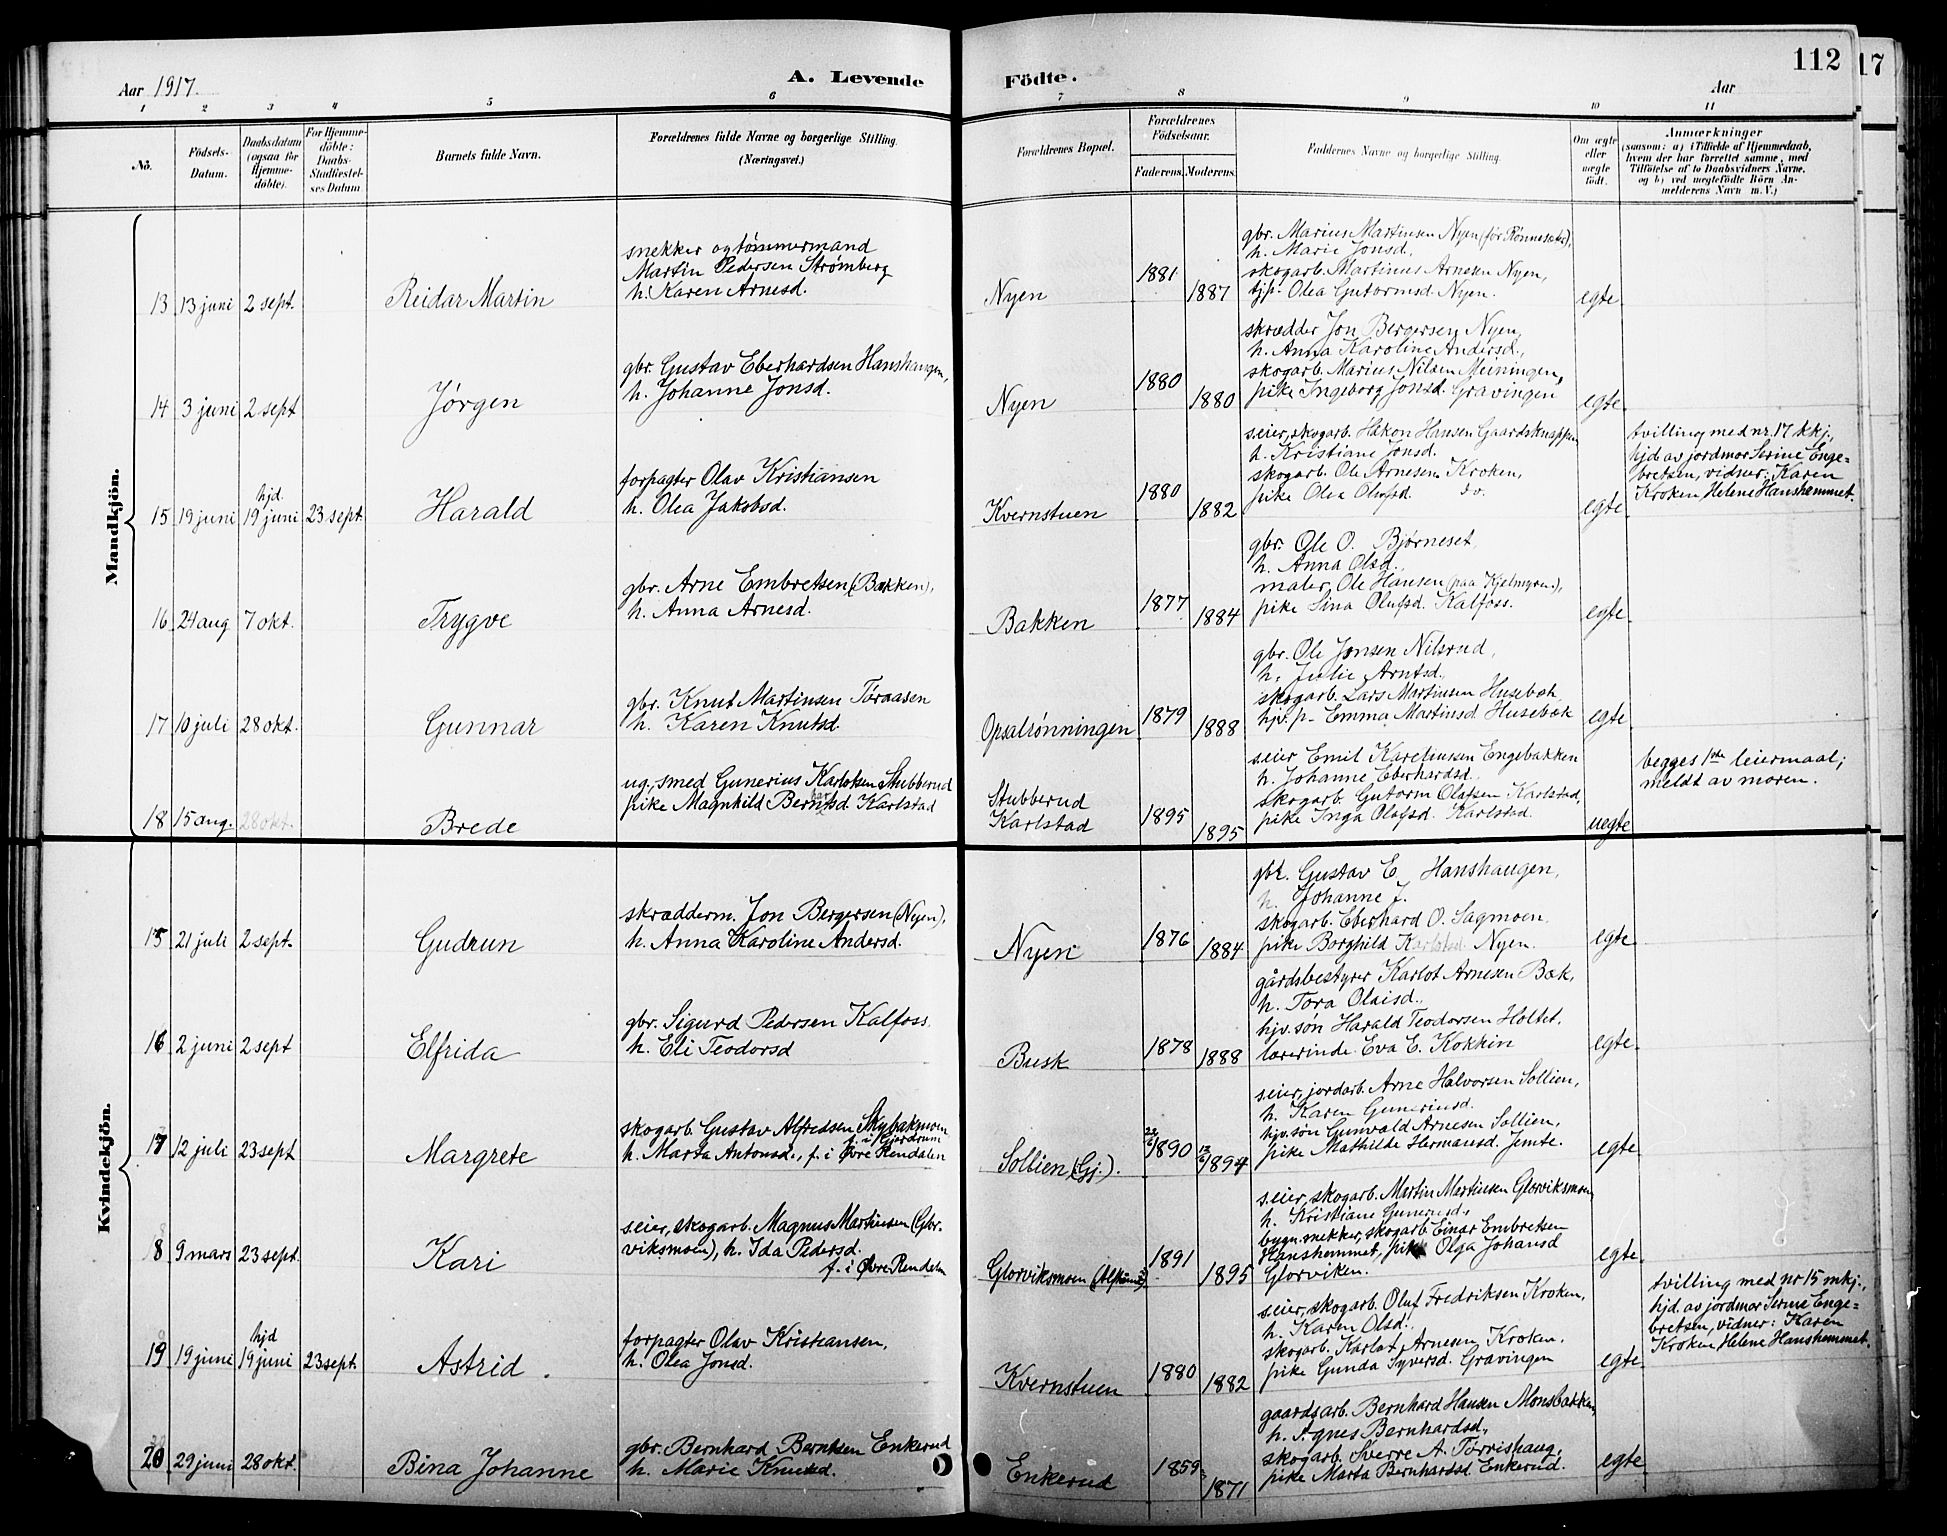 112
17
Aar 1917.
A. Levende Födte.
Aar
1 2 3 4 5 6 7 8 9 10 11
No.
Födsels-Datum.
Daabsdatum (ogsaa for Hjemme-döbte).
For Hjemme-döbte: Daabs-Stadfæstel-ses Datum
Barnets fulde Navn.
Forældrenes fulde Navne og borgerlige Stilling. (Næringsvei.)
Forældrenes Bopæl.
Forældrenes Födselsaar.
Faderens. Moderens.
Faddernes Navne og borgerlige Stilling.
Om ægte eller uægte födt.
Anmærkninger
(saasom: a) i Tilfælde af Hjemmedaab, hvem der har forrettet samme, med Tilföielse af to Daabsvidners Navne, og b) ved uægtefödte Börn An-melderens Navn m. V.)
Mandkjön.
13 13 juni 2 sept. Reidar Martin
snekker og tömmermand
Martin Pedersen Strømberg
h. Karen Arnesd.
Nyen 1881 1887
gbr. Marius Martinsen Nyen (för Rönnesæter),
h. Marie Jonsd.,
skogarb. Martinius Arnesen Nyen,
tjp. Olea Gutormsd. Nyen.
egte
14 3 juni 2 sept Jørgen
gbr. Gustav Eberhardsen Hanshaugen,
h. Johanne Jonsd.
Nyen 1880 1880
skrædder Jon Bergersen Nyen,
h. Anna Karoline Andersd.,
skogarb. Marius Nilsen Meiningen,
pike Ingeborg Jonsd. Gravingen
egte
15 19 juni hjd. 19 juni 23 sept. Harald
forpagter Olav Kristiansen
h. Olea Jakobsd.
Kvernstuen 1880 1882
seier, skogarb. Håkon Hansen Gaardsknappen
h. Kristiane Jonsd.
skogarb. Ole Arnesen Kroken,
pike Olea Olufsd. do.
egte
tvilling med nr. 17 kkj.,
hjd. av jordmor Serine Enge=
bretsen, vidner: Karen
Kroken, Helene Hanshemmet.
16 24 aug 7 okt. Trygve
gbr. Arne Embretsen (Bakken),
h. Anna Arnesd.
Bakken 1877 1884
gbr. Ole O. Bjørneset,
h. Anna Olsd.,
maler Ole Hansen (paa Kjelmyren),
pike Lina Olufsd. Kalfoss.
egte
17 10 juli 28 okt. Gunnar
gbr. Knut Martinsen Tøraasen
h. Karen Knutsd.
Opsalrønningen 1879 1888
gbr. Ole Jonsen Nilsrud,
h. Julie Arntsd.,
skogarb. Lars Martinsen Husebæk
hjv. p. Emma Martinsd. Husebæk
egte
18 15 aug. 28 okt. Brede
ug., smed Gunerius Karlotsen Stubberud
pike Magnhild Berntsd. Karlstad
Stubberud
Karlstad 1895 1895
seier Emil Kareliussen Engebakken
h. Johanne Eberhardsd.,
skogarb. Gutorm Olafsen Karlstad,
pike Inga Olafsd. Karlstad.
uegte
begges 1ste leiermaal;
meldt av moren.
Kvindekjön.
15 21 juli 2 sept. Gudrun
skrædderm. Jon Bergersen (Nyen),
h. Anna Karoline Andersd.
Nyen 1876 1884
gbr. Gustav E. Hanshaugen,
h. Johanne J.
skogarb. Eberhard O. Sagmoen,
pike Borghild Nyen.
egte
16 2 juni 2 sept Elfrida
gbr. Sigurd Pedersen Kalfoss,
h. Eli Teodorsd
Busk 1878 1888
gårdsbestyrer Karlot Arnesen Bæk,
h. Tora Olaisd.,
hjv. søn Harald Teodorsen Holtet,
lærerinde Eva E. Kokkin
egte
17 12 juli 23 sept Margrete
skogarb. Gustav Alfredsen Skybakmoen
f. i Gjerdrum
h. Marta Antonsd., f. i Øvre Rendalen
Sollien (Gj.). 22/6 1890 1894
seier, jordarb. Arne Halvorsen Sollien,
h. Karen Guneriusd.
hjv. søn Gunvald Arnesen Sollien,
pike Mathilde Hermansd. Jemte.
egte
18 9 mars 23 sept. Kari
seier, skogarb. Magnus Martinsen (Glor-
viksmoen), h. Ida Pedersd.
f. i Øvre Rendalen
Glorviksmoen 1891 1895
seier, skogarb. Martin Martinsen Glorviksmoen,
h. Kristiane Guneriusd.,
bygn.snekker, skogarb. Einar Embretsen
Hanshemmet, pike Olga Johansd
Glorviken.
egte
19 19 juni hjd 19 juni 23 sept. Astrid.
forpagter Olav Kristiansen,
h. Olea Jonsd.
Kvernstuen 1880 1882
seier, skogarb. Oluf Fredriksen Kroken,
h. Karen Olsd.,
skogarb. Karlot Arnesen Kroken,
pike Gunda Syversd. Gravingen
egte
tvilling med nr 15 mkj.,
hjd. av jordmor Serine Enge=
bretsen, vidner: Karen
Kroken, Helene Hanshemmet.
20 29 juni 28 okt. Bina Johanne
gbr. Bernhard Berntsen Enkerud
h. Marie Knutsd.
Enkerud 1859 1871
gaardsarb. Bernhard Hansen Monsbakken,
h. Agnes Bernhardsd.,
skogarb. Sverre A. Tørrishaug,
pike Marta Bernhardsd. Enkerud.
egte